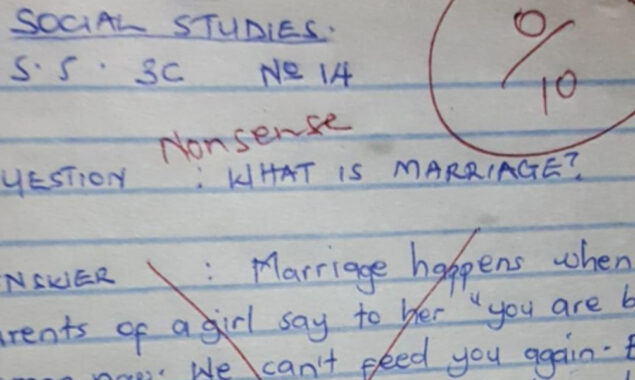 SOCIAL STUDIES.
S.S. 3C No 14
0/10
Nonsense
UESTION : WHAT IS MARRIAGE?
NSWER : Marriage happens when
rents of a girl say to her "you are b
now. We can't feed you again.